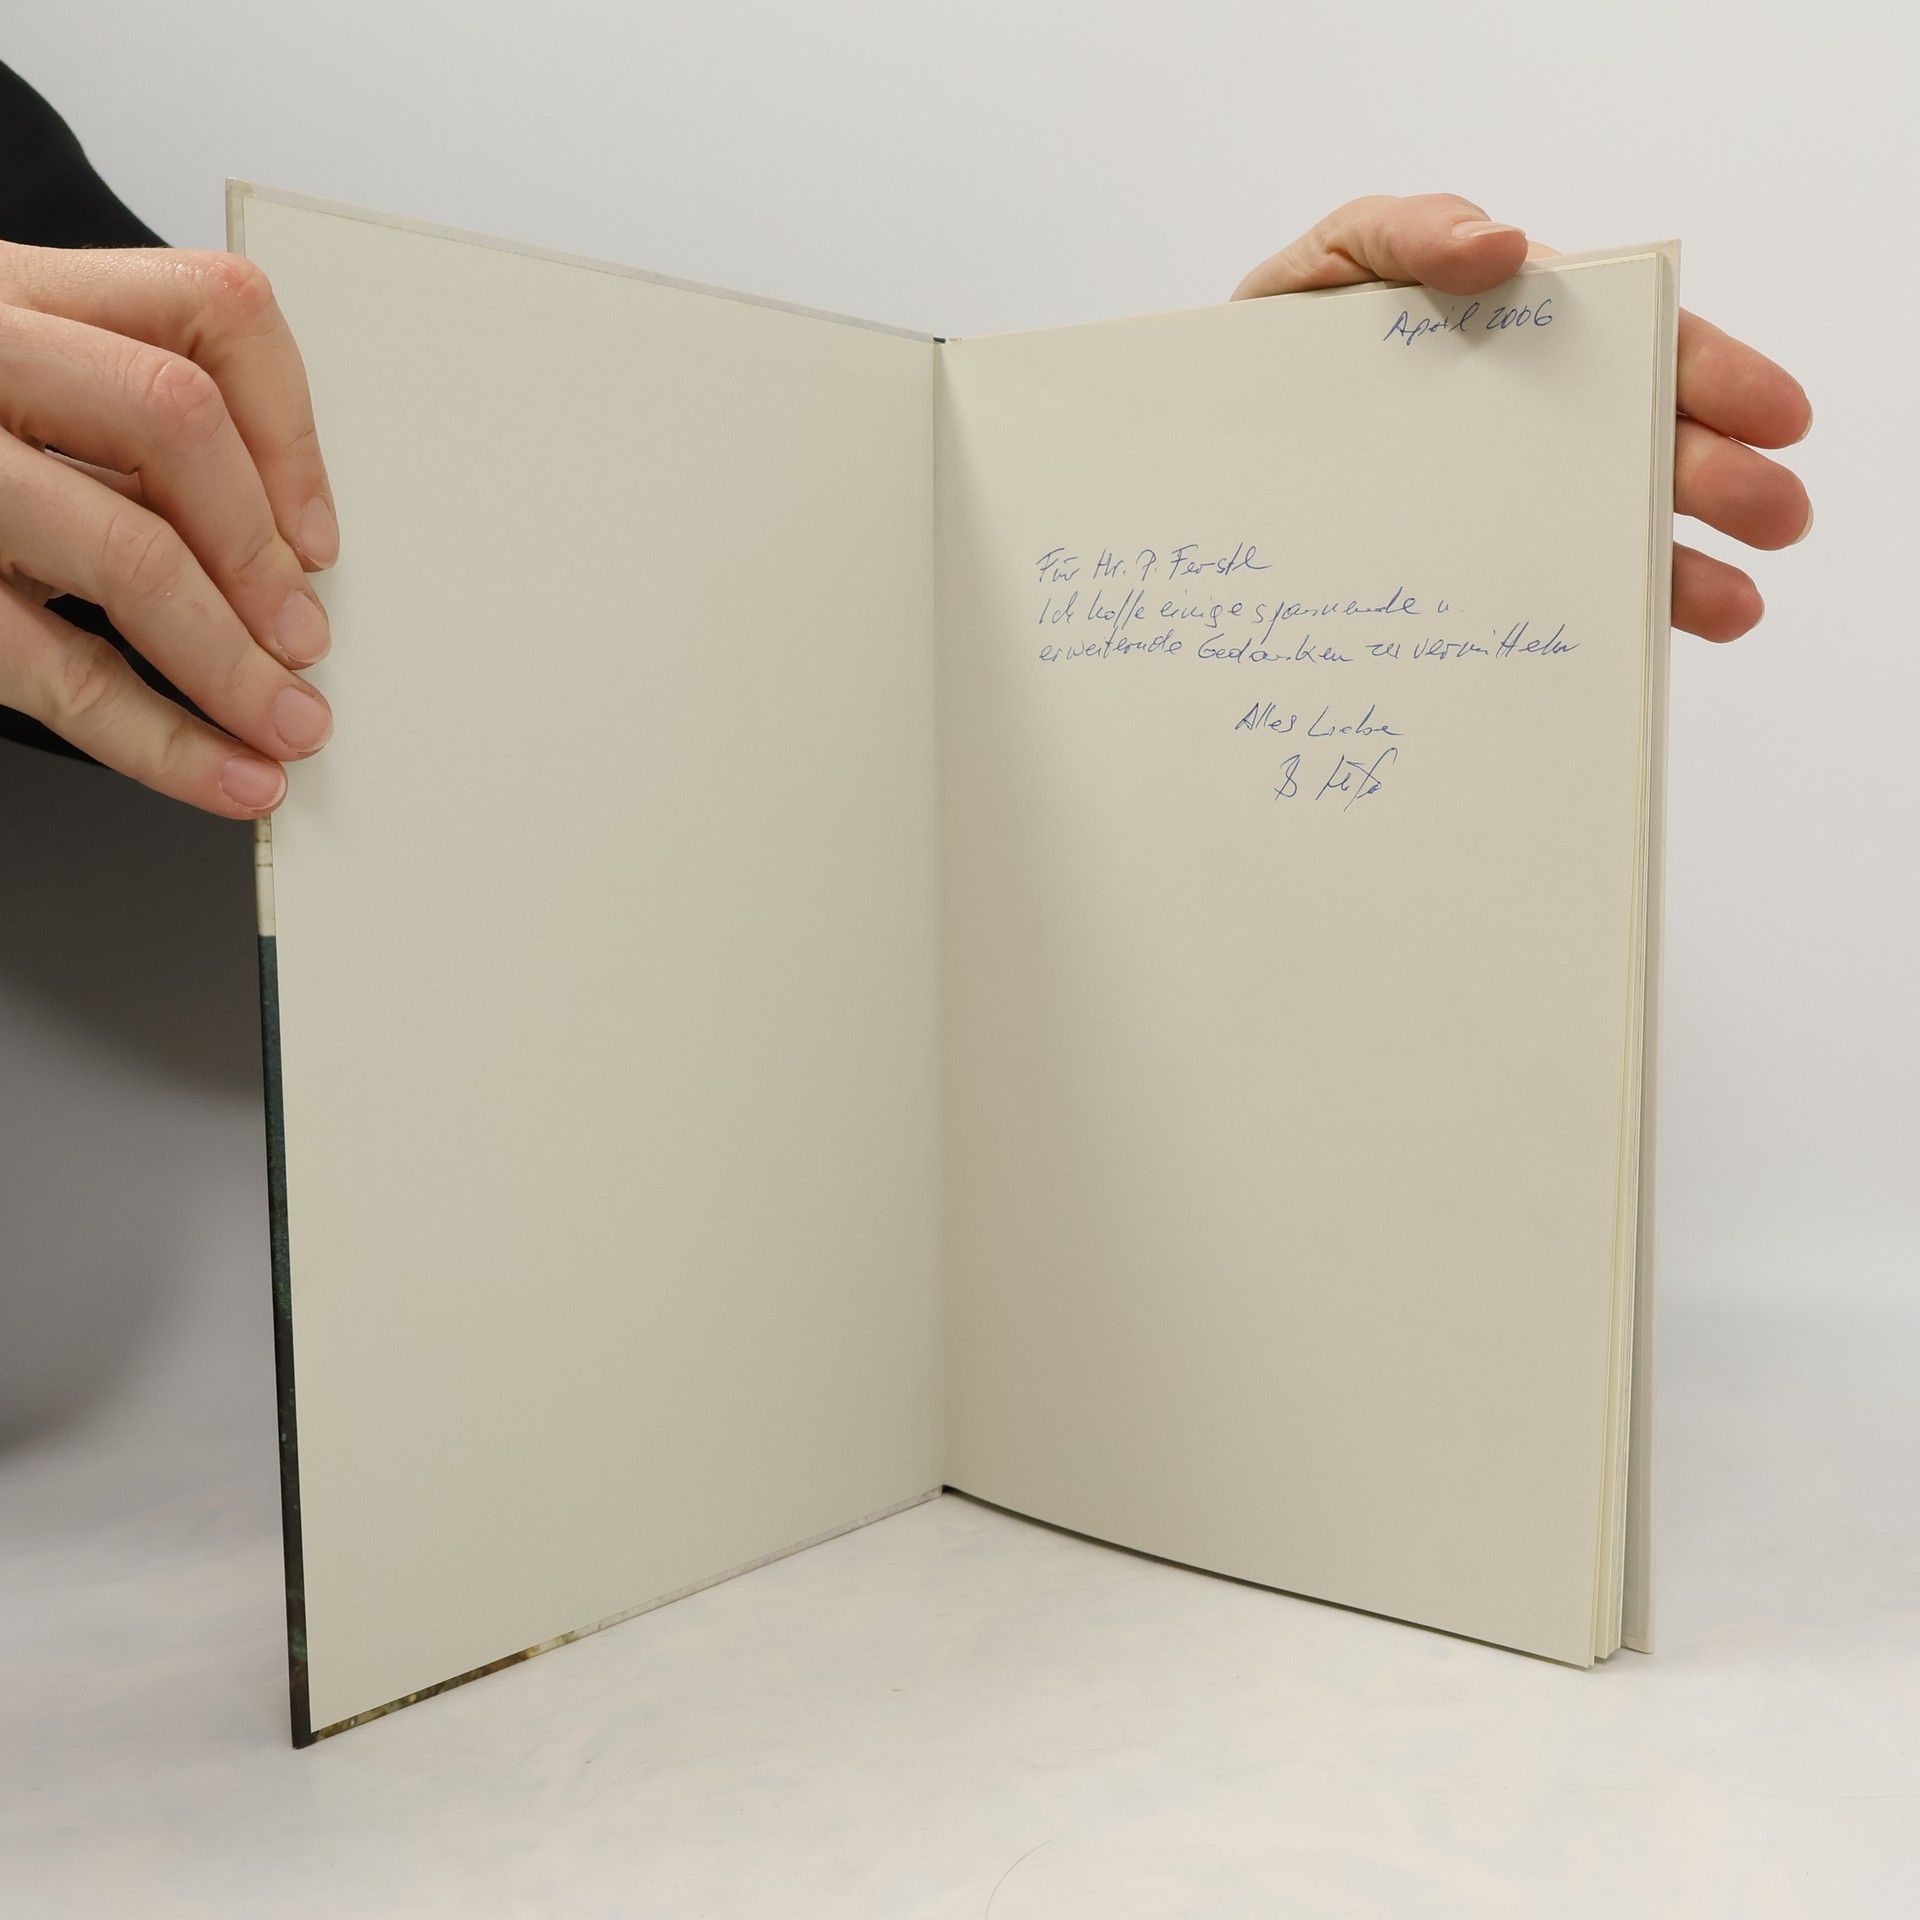 April 2006
Für Hr. P. Ferstl
Ich hoffe einige spannende u.
erweiternde Gedanken zu vermitteln
Alles Liebe
B